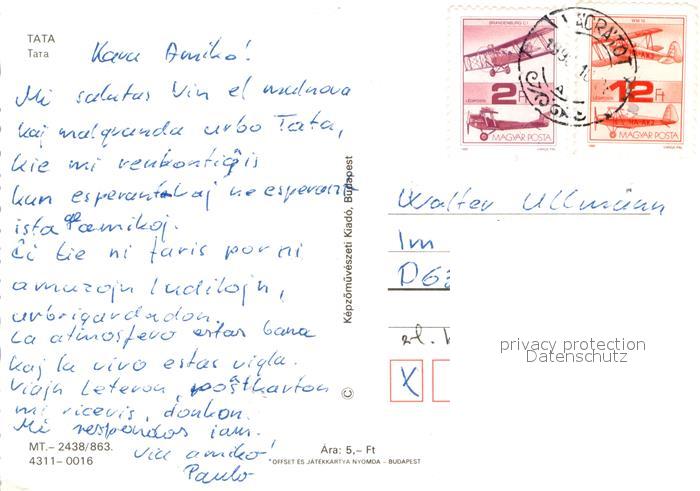 TATA
Tata
Kara Amiko!
Mi salutas Vin el malnova
kaj malgranda urbo Tata,
kie mi renkontiĝis
kun esperantistaj kaj ne esperant
ista amikoj.
Ĉi tie ni faris por ni
amuzajn ludilojn,
urbrigardadon.
La atmosfero estas bona
kaj la vivo estas vigla.
Viajn leteron, poŝtkarton
mi ricevis, dankon.
Mi respondos iam.
Via amiko!
Paulo
MT.– 2438/863.
4311–0016
Ára: 5,– Ft
*OFFSET ÉS JÁTÉKKÁRTYA NYOMDA - BUDAPEST
© Képzőművészeti Kiadó, Budapest
BRANDENBURG C I
2 Ft
LÉGIPOSTA
MAGYAR POSTA
12 Ft
LÉGIPOSTA
HA-AKJ
MAGYAR POSTA
Walter Ullmann
Im
D63
X
privacy protection
Datenschutz